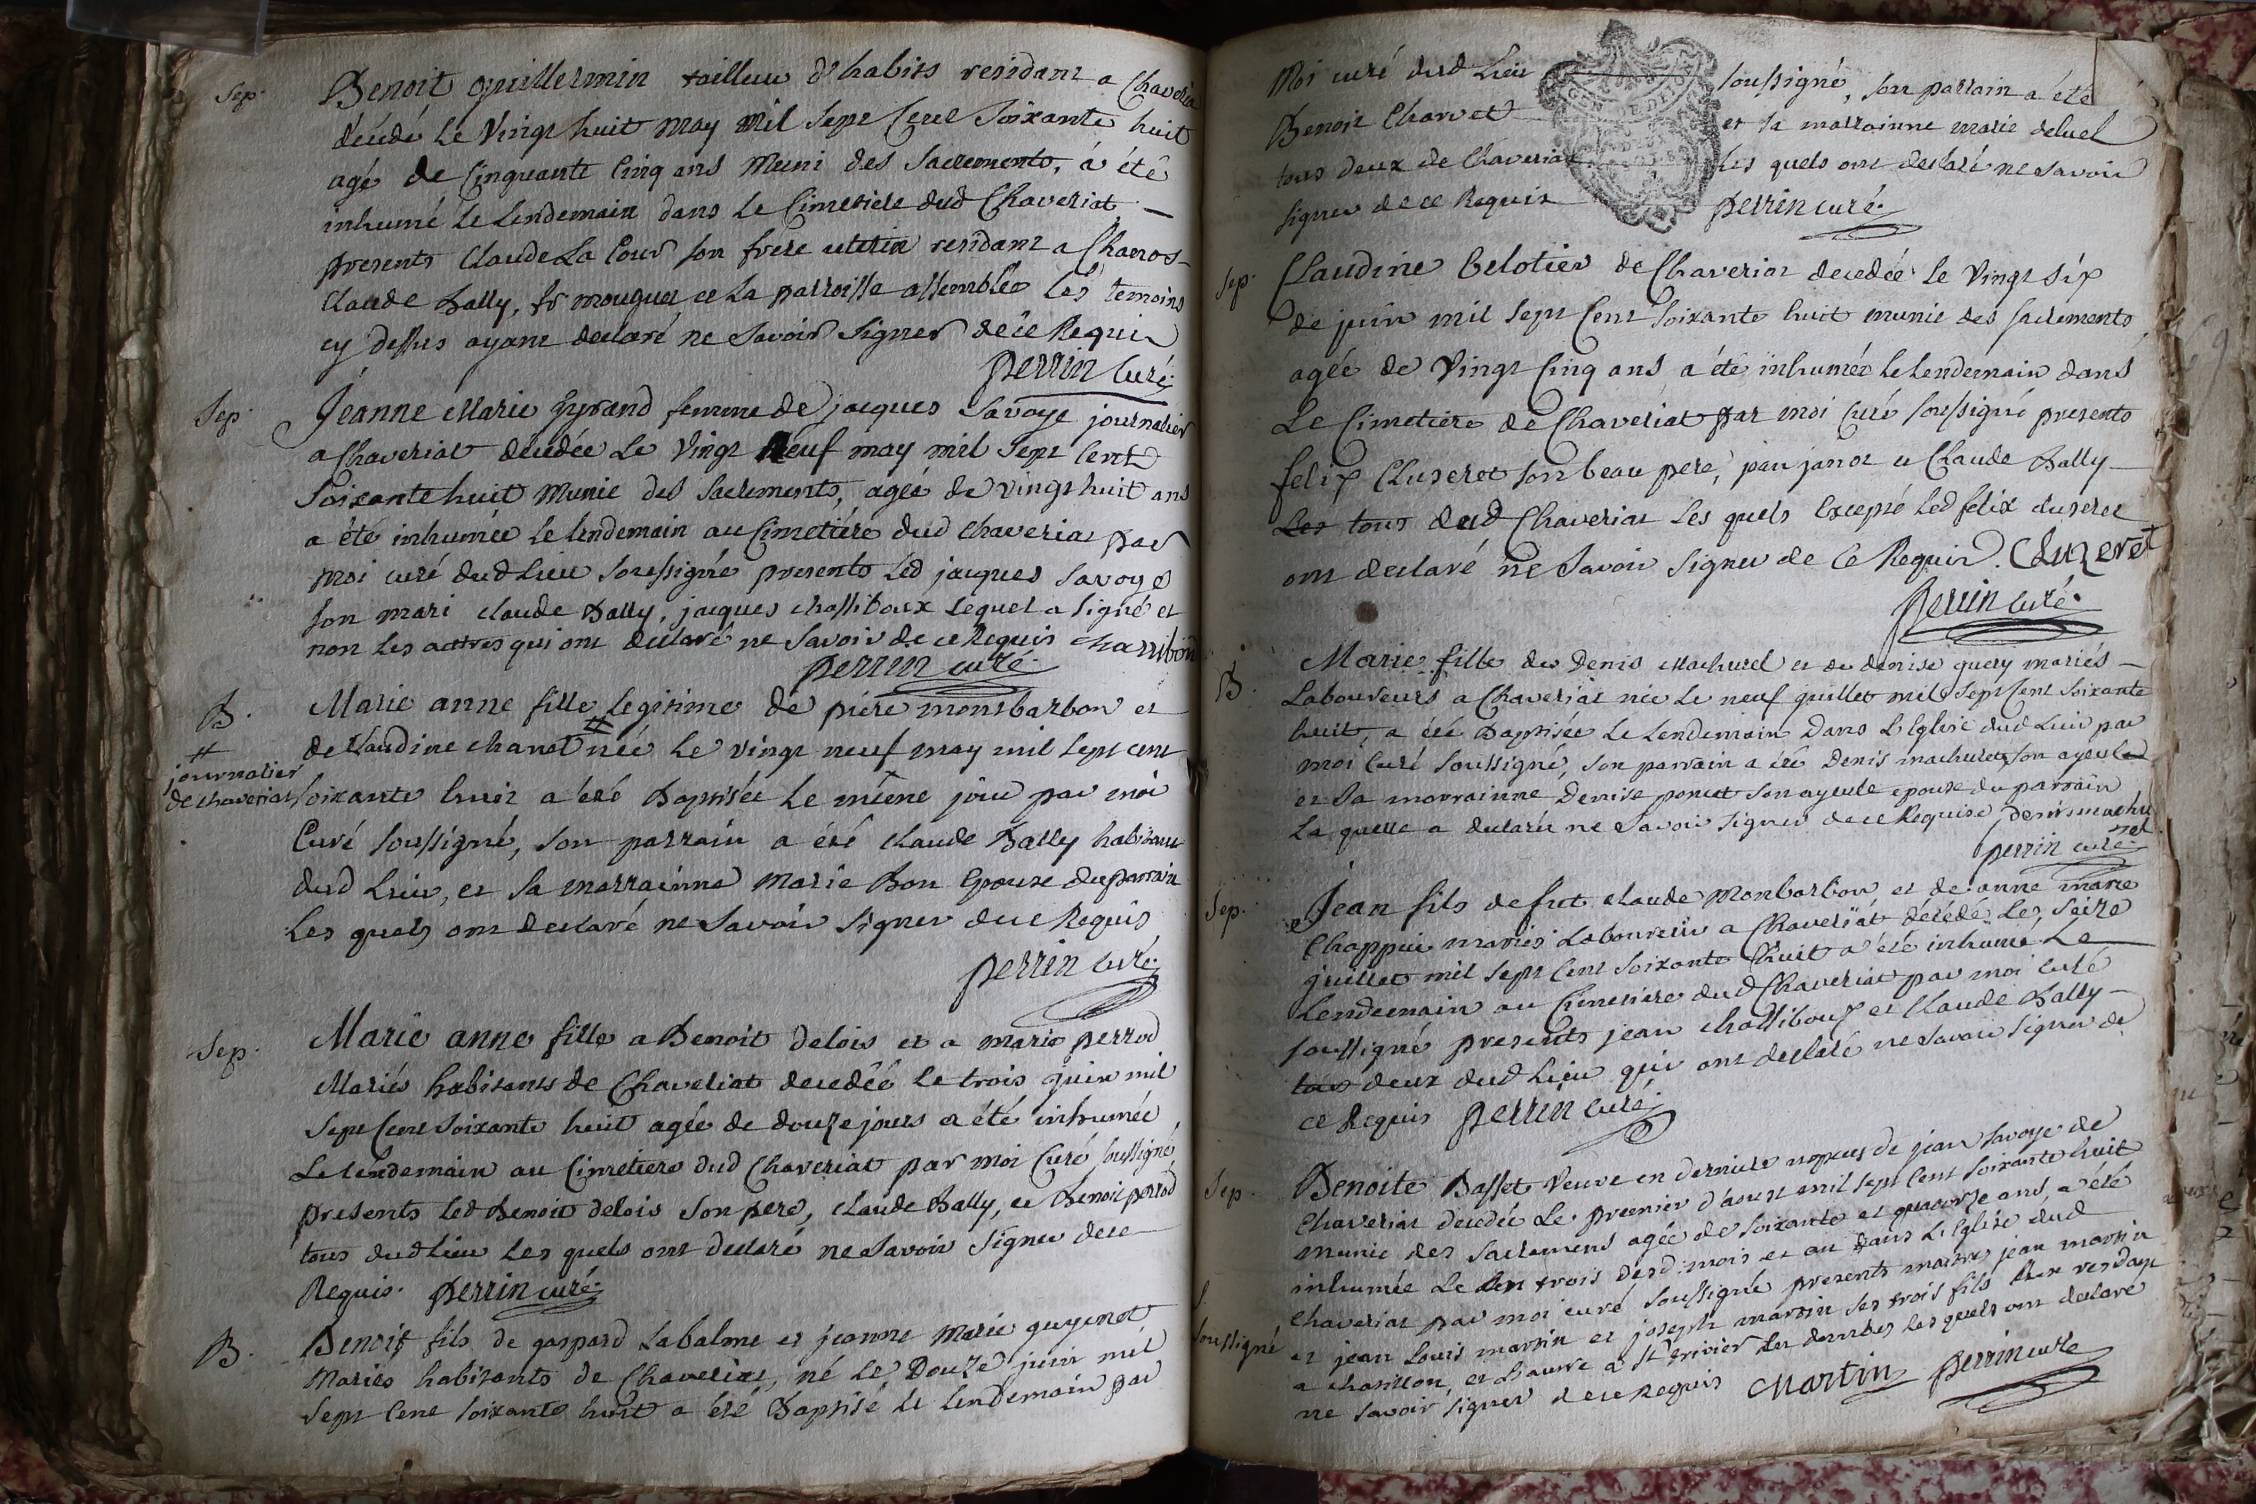 Sep.
Benoit guillermin tailleur d'habits residant a Chaveria
décédé le vingt huit may mil sept cent soixante huit
agé de cinquante cinq ans muni des sacrements, á été
inhumé le lendemain dans le Cimetiere dud Chaveriat
presents Claude La Cour son frere uterin residant a
Claude Bally, et la parroisse assemblée les temoins
cy dessus ayant declaré ne savoir signer de ce Requis
perrin curé.
Sep.
Jeanne Marie gyrand femme de jacques Savoye journalier
a Chaveriat decedée le vingt neuf may mil sept cent
soixante huit munie des sacrements, agée de vingt huit ans
a été inhumée le lendemain au Cimetiére dud Chaveriat par
moi curé dud Lieu soussigné presents led jacques Savoye
son mari claude Bally, jacques chassiboux lequel a signé et
non les autres qui ont declaré ne savoir de ce Requis
perrin curé.
B.
Marie anne fille legitime de piere montbarbon et
de Claudine chanat # née le vingt neuf may mil sept cent
#
journalier
de chaveriat
soixante huit a été Baptisée le même jour par moi
Curé soussigné, son parrain a été claude Bally habitant
dud Lieu, et sa marrainne Marie Bon Epouse du parrain
les quels ont declaré ne savoir signer de ce Requis
perrin curé.
Sep.
Marie anne fille a Benoit delois et a marie perrod
Mariés habitants de Chaveriat decedée le trois guin mil
sept cent soixante huit agée de douze jours a été inhumée
le lendemain au Cimetiere dud Chaveriat par moi Curé soussigné,
presents led Benoit delois son pere, claude Bally, et Benoit perrod
tous dud Lieu les quels ont declaré ne savoir signer de ce
Requis. perrin curé.
B.
Benoit fils de gaspard Labalme et jeanne Marie guyenot
Mariés habitants de Chaveriat, né le Douze juin mil
sept cent soixante huit a été Baptisé le lendemain par
Moi curé dud Lieu soussigné, son parrain a été
Benoit Charvet et sa marrainne marie deluel
tous deux de Chaveriat les quels ont declaré ne savoir
signer de ce Requis perrin curé.
Sep.
Claudine belotier de Chaveriat decedée le vingt six
de juin mil sept cent soixante huit munie des sacrements
agée de vingt cinq ans a été inhumée le lendemain dans
Le Cimetiere de Chaveriat par moi Curé soussigné presents
felix Cluseret son beau pere, janot et Claude Bally
Les tous dud Chaveriat les quels excepté led felix cluseret
ont declaré ne savoir signer de ce Requis. Cluzeret
perrin curé.
B.
Marie fille de Denis Machurel et de denise guery mariés
Laboureurs a Chaveriat née le neuf guillet mil sept cent soixante
huit, a été Baptisée le lendemain dans l'Eglise dud Lieu par
moi Curé soussigné, son parrain a été Denis machurel son ayeul
et sa marrainne Denise poncet son ayeule epouse du parrain
la quelle a declaré ne savoir signer de ce Requise, denis machu
rel
perrin curé.
Sep.
Jean fils de fut claude Monbarbon et de anne marie
Chappui mariés Laboureur a Chaveriat décédé les seize
guillet mil sept cent soixante huit a été inhumé le
lendemain au Cimetiere dud Chaveriat par moi curé
soussigné presents jean chassiboux et Claude Bally
tous deux dud Lieu qui ont declaré ne savoir signer de
ce Requis perrin curé.
Sep.
Benoite Basset veuve en derniere nopces de jean Savoye de
Chaveriat decedée le premier d'aoust mil sept cent soixante huit
munie des sacremens agée de soixante et quatorze ans, a été
inhumée le trois desd mois et an dans l'Eglise dud
Chaveriat par moi curé soussigné presents maitres jean martin
S.
soussigné
et jean Louis martin et joseph martin ses trois fils
a chatillon, et l'autre a St trivier les quels ont declaré
ne savoir signer de ce Requis Martin perrin curé